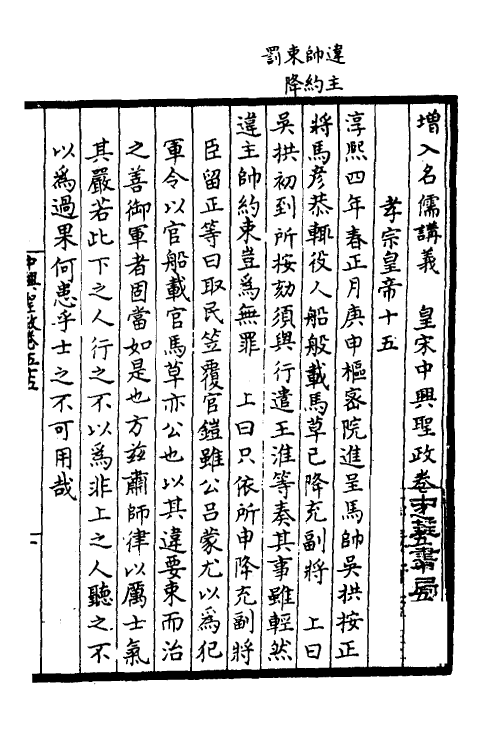 違主
帥約
束降
罰
增入名儒講義　皇宋中興聖政卷
孝宗皇帝十五
淳熙四年春正月庚申樞密院進呈馬帥吳拱按正
將馬彦恭輙役人船般載馬草已降充副將　上曰
吳拱初到所按劾須與行遣王淮等奏其事雖輕然
違主帥約束豈爲無罪　上曰只依所申降充副將
臣留正等曰取民笠覆官鎧雖公吕蒙尤以爲犯
軍令以官船載官馬草亦公也以其違要束而治
之善御軍者固當如是也方茲肅師律以厲士氣
其嚴若此下之人行之不以爲非上之人聽之不
以爲過果何患乎士之不可用哉
中興聖政卷五十五
一